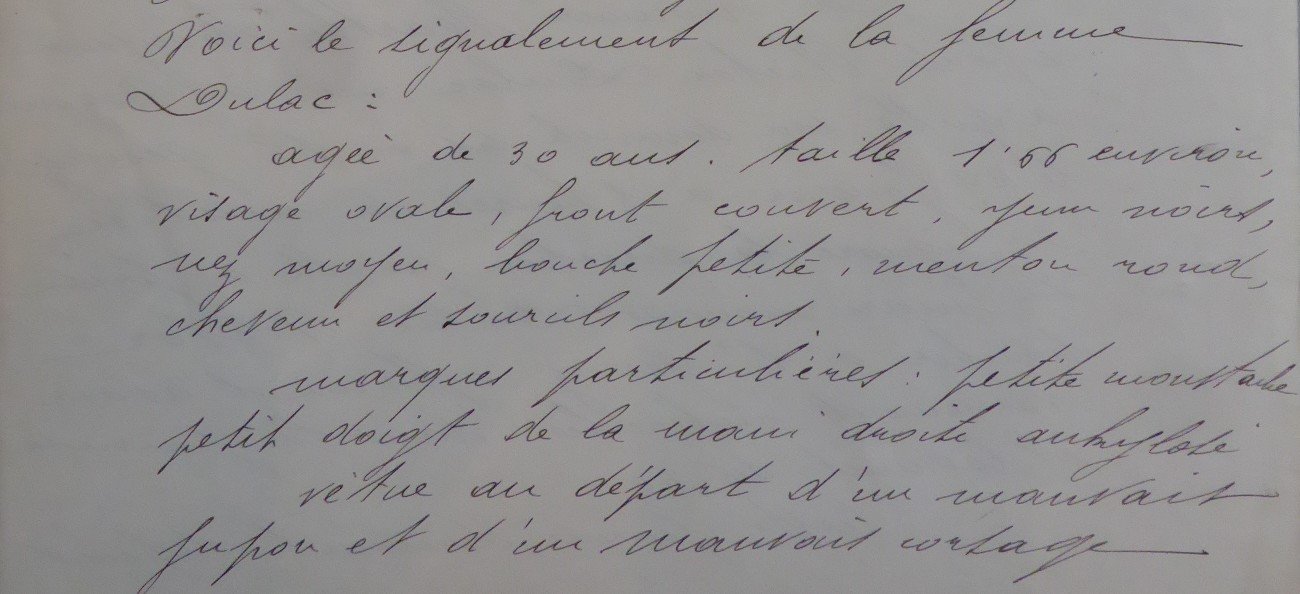 Voici le signalement de la femme
Dulac :
agée de 30 ans. taille 1'66 environ,
visage ovale, front couvert, yeux noirs,
nez moyen, bouche petite, menton rond,
cheveux et sourcils noirs.
marques particulières : petite moustache
petit doigt de la main droite ankylosé
vêtue au départ d'un mauvais
jupon et d'un mauvais corsage